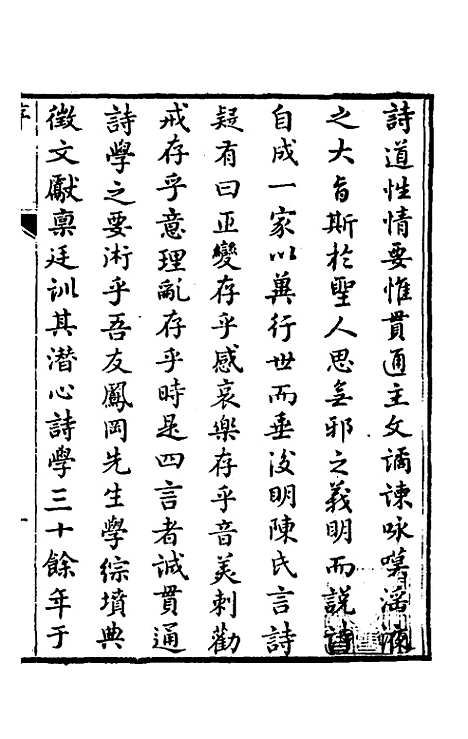 詩道性情要惟貫通主文譎諫咏嘆滛
之大旨斯於聖人思無邪之義明而說詩
自成一家以兾行世而垂後明陳氏言詩
疑有曰正變存乎感哀樂存乎音美刺勸
戒存乎意理亂存乎時是四言者誠貫通
詩學之要術乎吾友鳳岡先生學綜墳典
徵文獻禀廷訓其潜心詩學三十餘年于